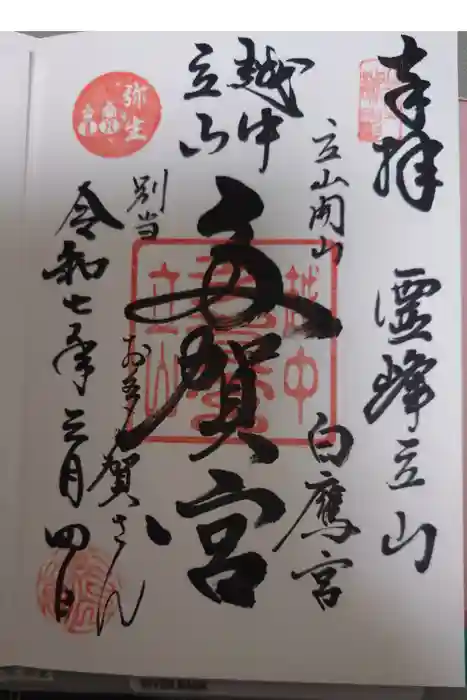 奉拝
霊峰立山
立山開山
白鷹宮
越中
立山
多賀宮
越中
立山
別当
お多賀さん
弥生
令和七年三月四日